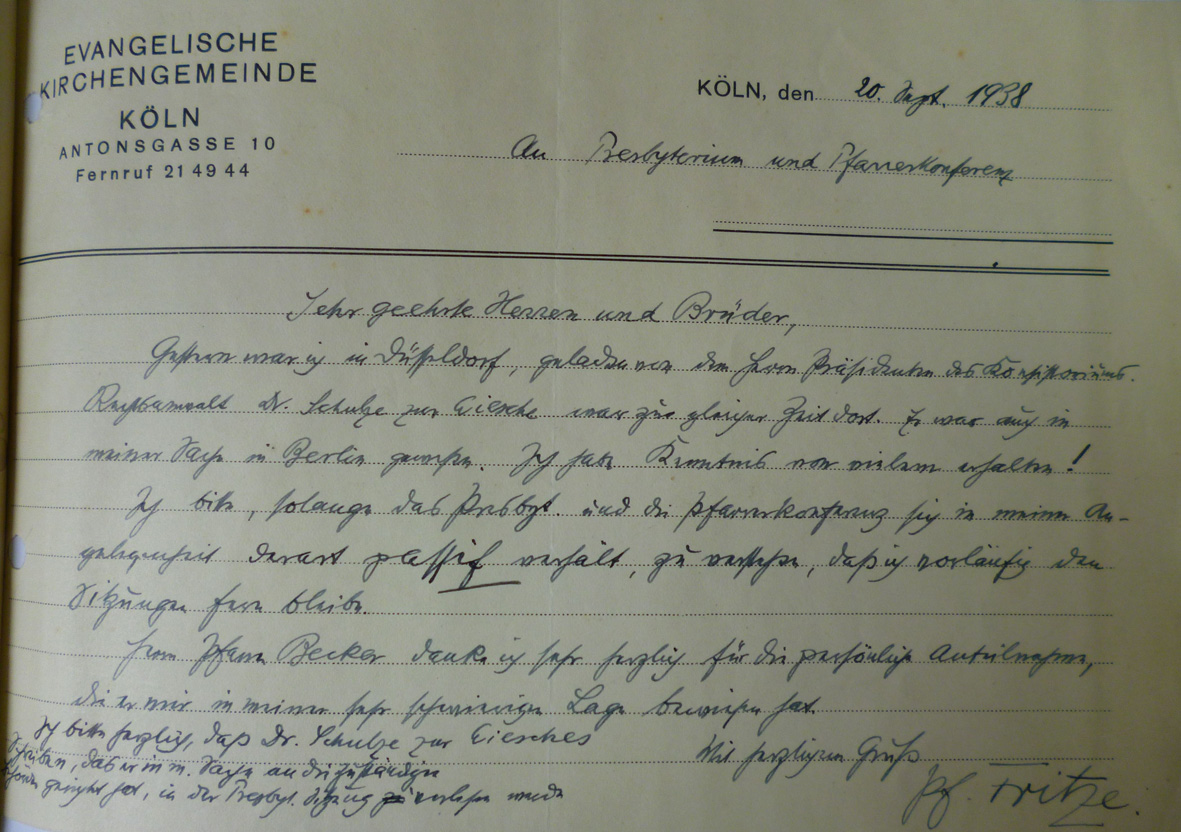 EVANGELISCHE
KIRCHENGEMEINDE
KÖLN
ANTONSGASSE 10
Fernruf 21 49 44
KÖLN, den 20. Sept. 1938
An Presbyterium und Pfarrerkonferenz
Sehr geehrte Herren und Brüder,
Gestern war ich in Düsseldorf, geladen von dem Herrn Präsidenten des Konsistoriums.
Rechtsanwalt Dr. Schulze zur Wiesche war zur gleichen Zeit dort. Er war auch in
meiner Sache in Berlin gewesen. Ich habe Kenntnis von vielem erhalten!
Ich bitte, solange das Presbyt. und die Pfarrerkonferenz sich in meiner An-
gelegenheit derart passif verhält, zu verstehen, daß ich vorläufig den
Sitzungen fern bleibe.
Herrn Pfarrer Becker danke ich sehr herzlich für die persönliche Anteilnahme,
die er mir in meiner sehr schwierigen Lage bewiesen hat.
Ich bitte herzlich, daß Dr. Schulze zur Wiesches
Schreiben, das er in m. Sache an die zuständigen
gericht hat, in der Presbyt. Sitzung verlesen werde
Mit herzlichem Gruß
Pf. Fritze.